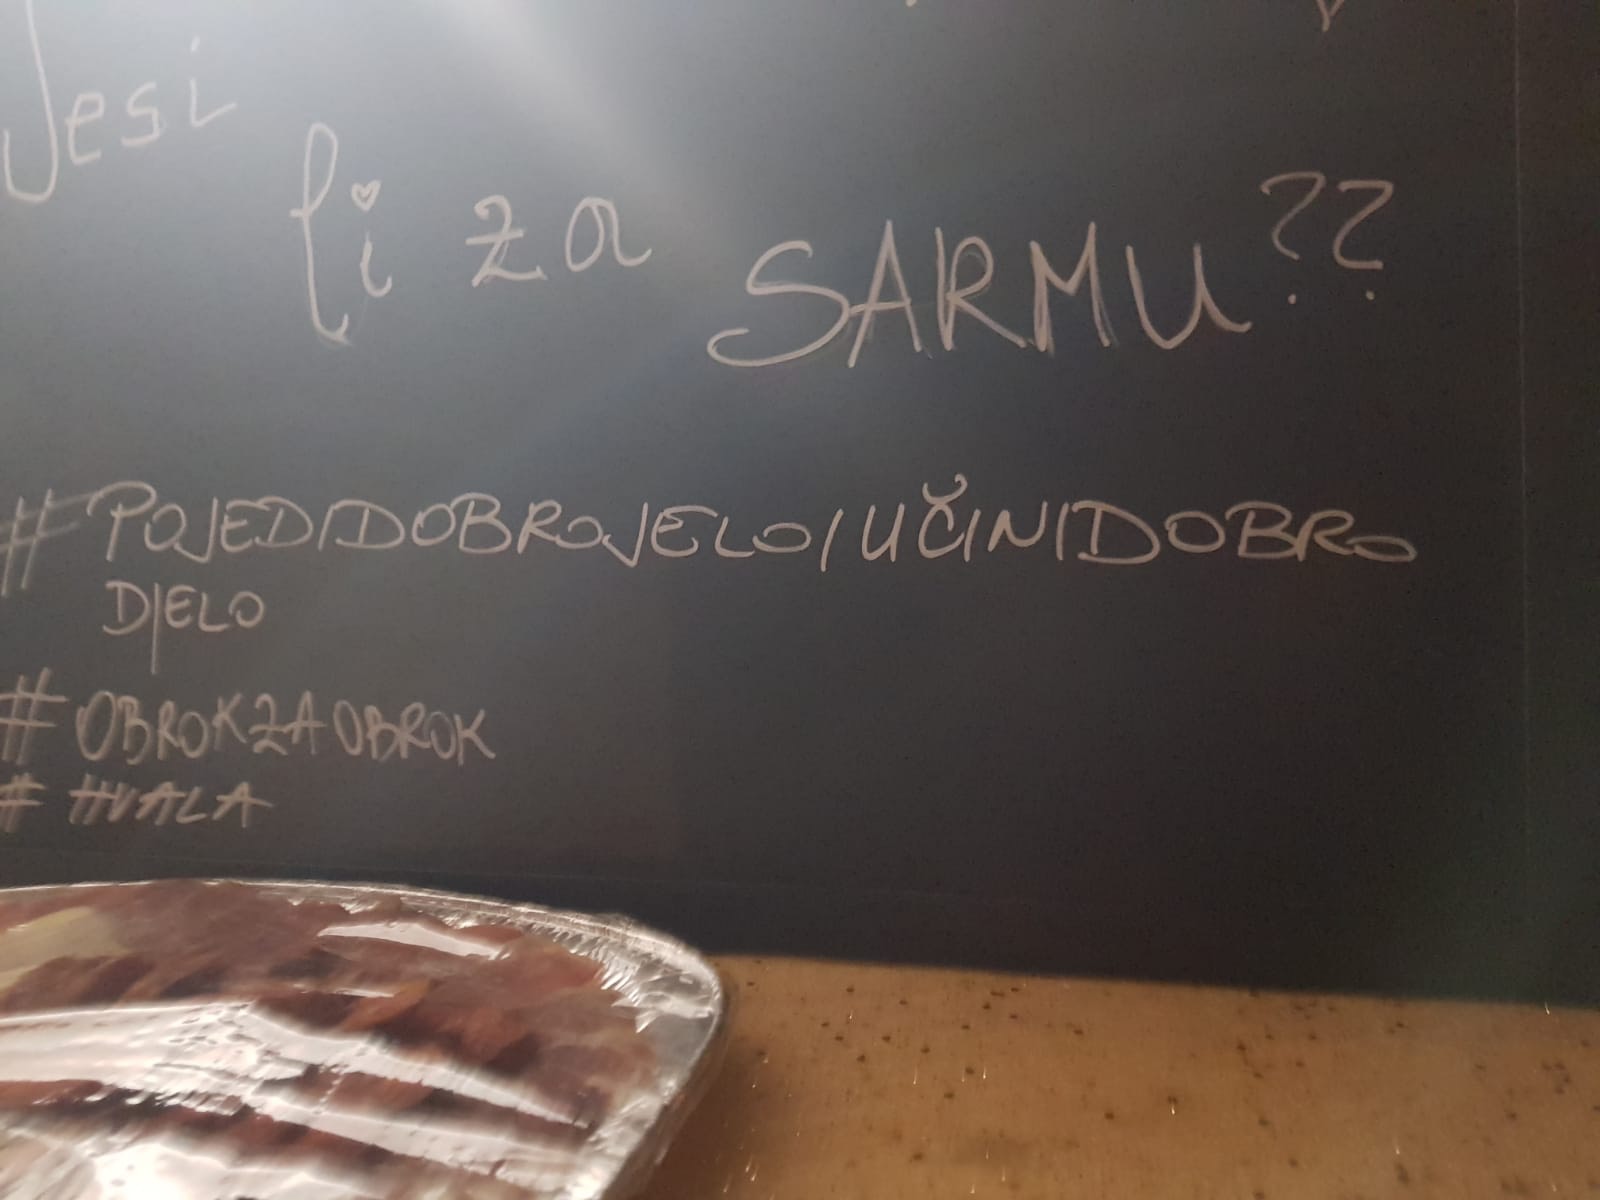 Jesi
li za SARMU??
#POJEDIDOBROJELOIUČINIDOBRO
DJELO
#OBROKZAOBROK
#HVALA